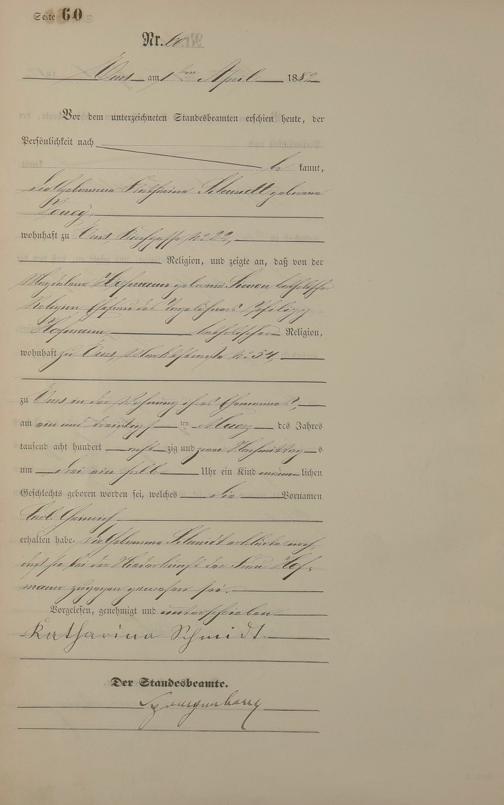 Seite 60
Nr. 60
Ems am 1ten April 1882
Vor dem unterzeichneten Standesbeamten erschien heute, der
Persönlichkeit nach
be kannt,
die Hebamme Katharina Schmidt geborene
wohnhaft zu Ems, Kirchgasse No 22,
Religion, und zeigte an, daß von der
Magdalena Hofmann geborene Simon katholischer
Religion Ehefrau des Tagelöhners Philipp
Hofmann katholischer Religion,
wohnhaft zu Ems, No 54,
zu Ems in der Wohnung ihres Ehemannes,
am ein und dreißigsten März des Jahres
tausend acht hundert acht zig und zwei Nachmittags
um drei ein halb Uhr ein Kind männ lichen
Geschlechts geboren worden sei, welches die Vornamen
Carl Heinrich
erhalten habe. Die Hebamme Schmidt erklärte noch,
daß sie bei der Niederkunft der Frau Hof-
mann zugegen gewesen sei.
Vorgelesen, genehmigt und unterschrieben
Katharina Schmidt
Der Standesbeamte.
Spangenberg